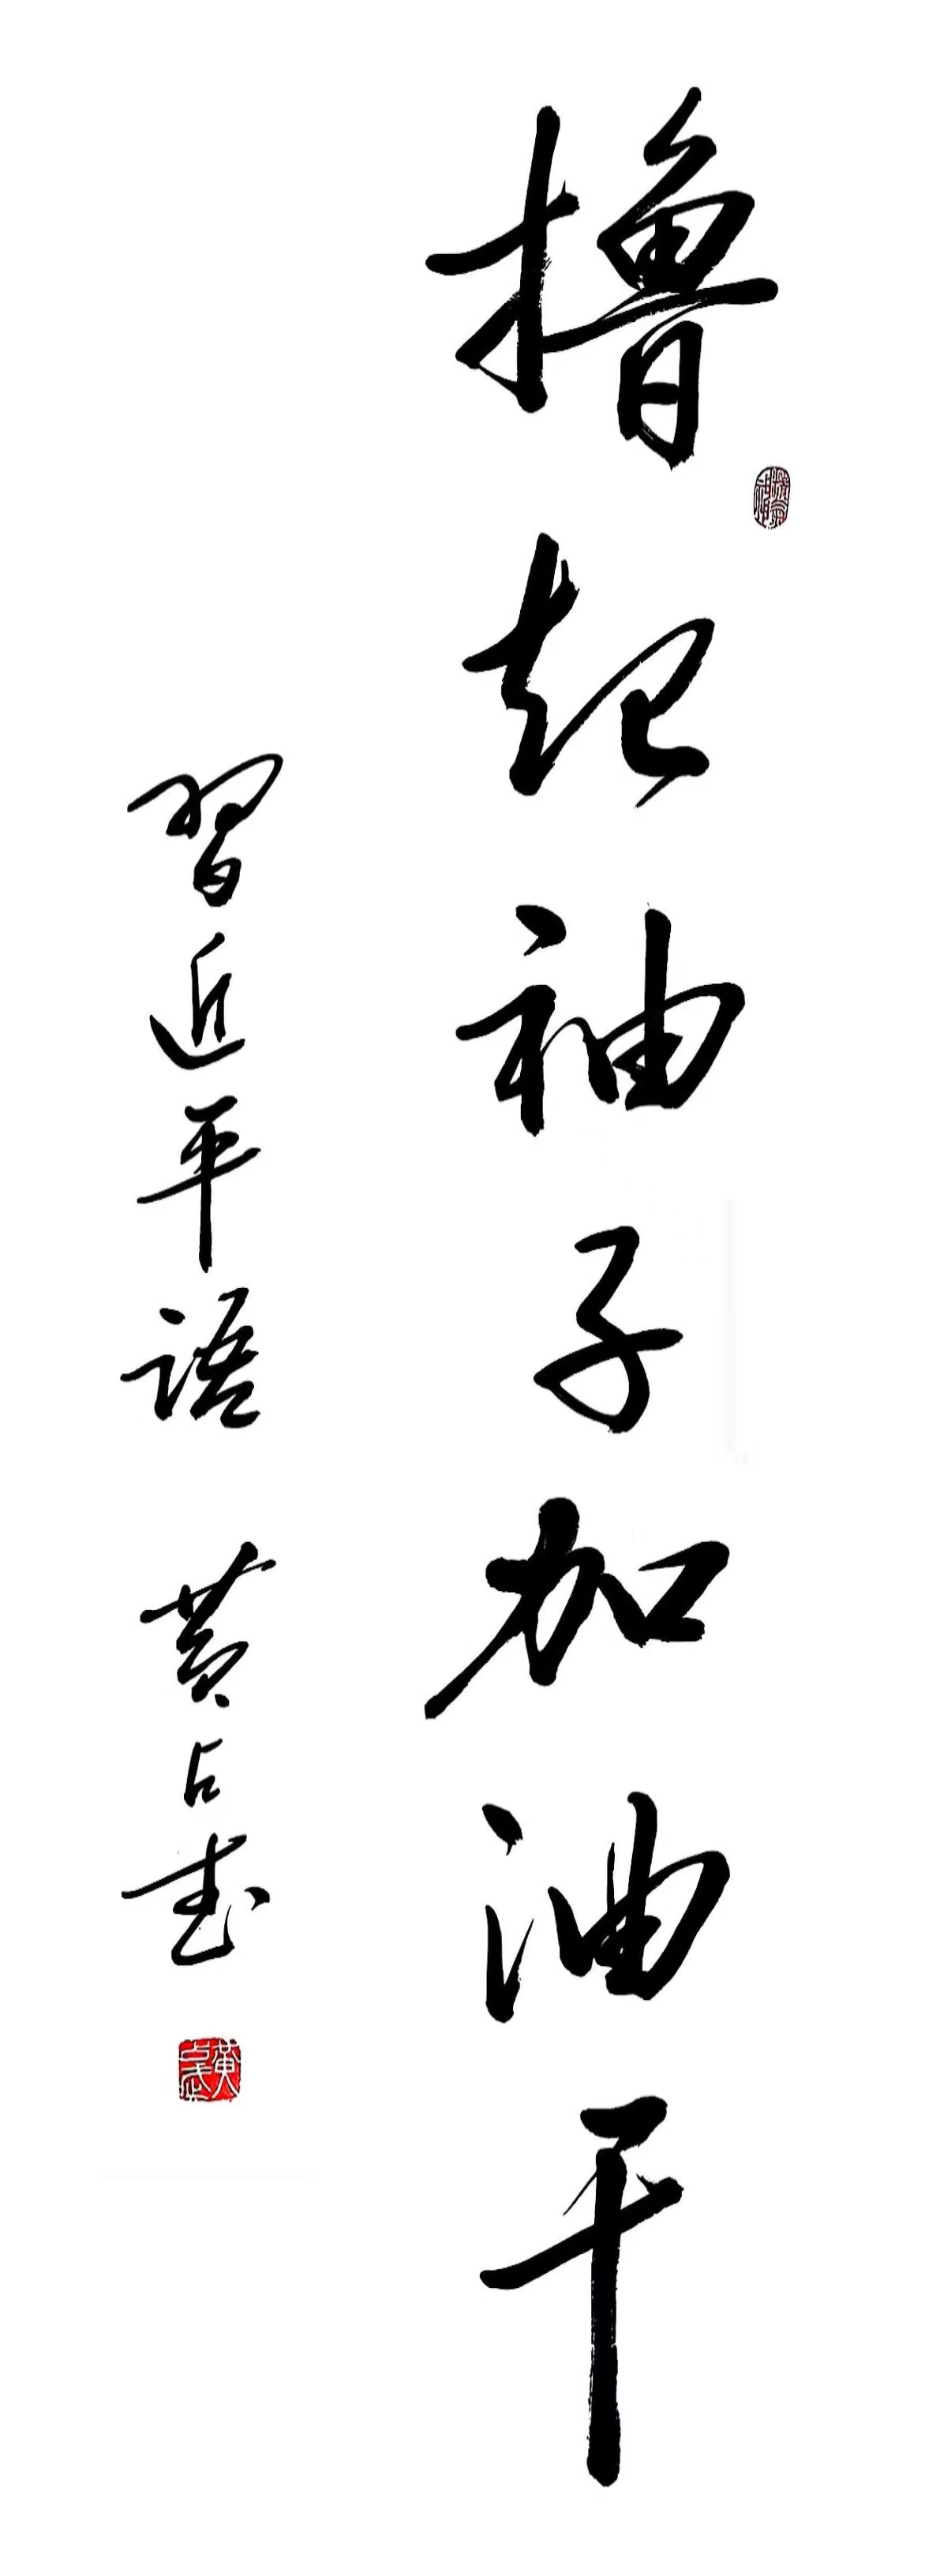 撸起袖子加油干
習近平語 黄占武